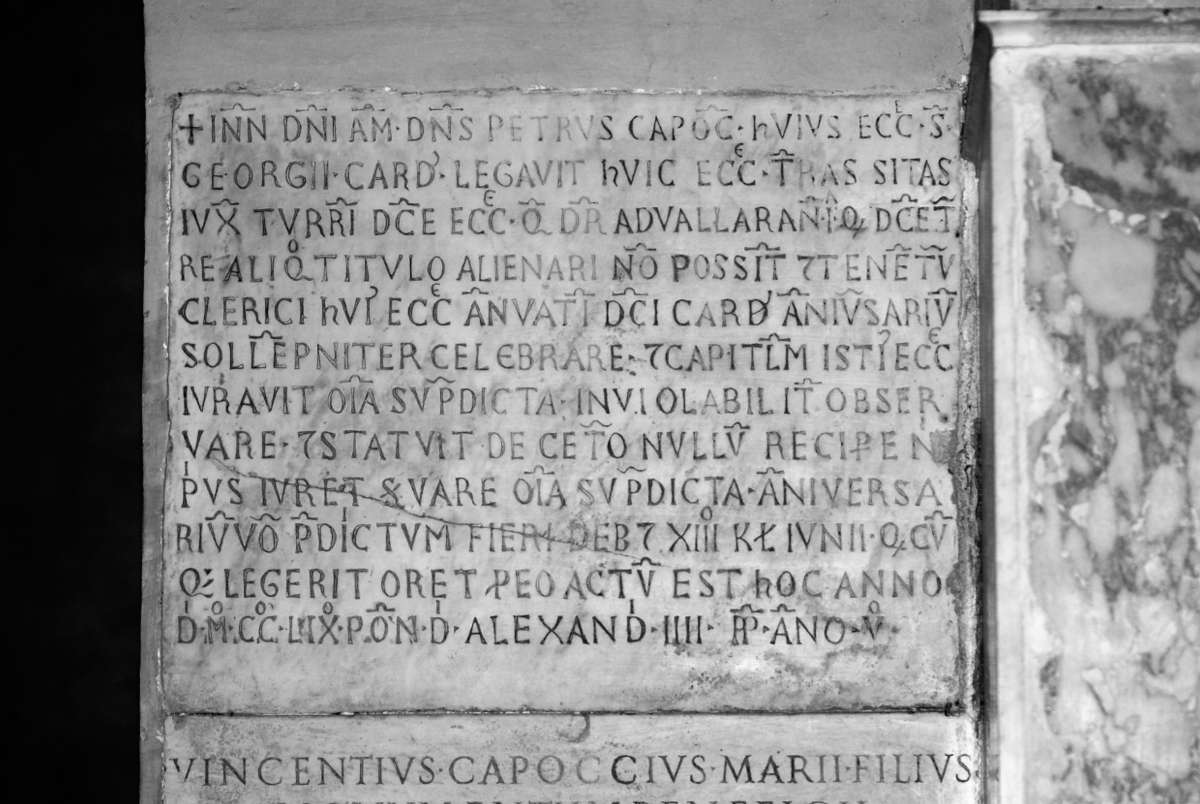 + INN DNI AM · DNS PETRVS CAPOC · hVIVS ECC · S ·
GEORGII · CARD · LEGAVIT hVIC ECC · TRAS SITAS
IVX TVRRI DCE ECC · Q DR ADVALLARANI · Q DCE T
RE ALIQ TITVLO ALIENARI NO POSSIT 7 TENETV
CLERICI hVI ECC ANVATI DCI CARD ANIVSARIV
SOLLEPNITER CELEBRARE : 7 CAPITLM ISTI ECC
IVRAVIT OIA SVPDICTA · INVIOLABILIT OBSER
VARE · 7 STATVIT DE CETO NVLLV RECIPE N
PVS IVRET SVARE OIA SVPDICTA · ANIVERSA
RIV VO PDICTVM FIERI DEB 7 XIIII KL IVNII · Q CV
Q LEGERIT ORET P EO ACTV EST hOC ANNO
D · M · CC · LIX · PON · D · ALEXAND · IIII · PP · ANO · V ·
VINCENTIVS · CAPOCCIVS · MARII · FILIVS